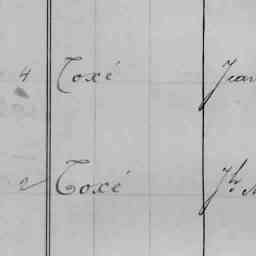 4 Toxé Jean
2 Toxé Jh